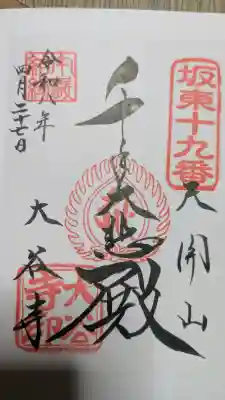 坂東十九番
天開山
千手大悲殿
大谷寺
令和八年
四月二十七日